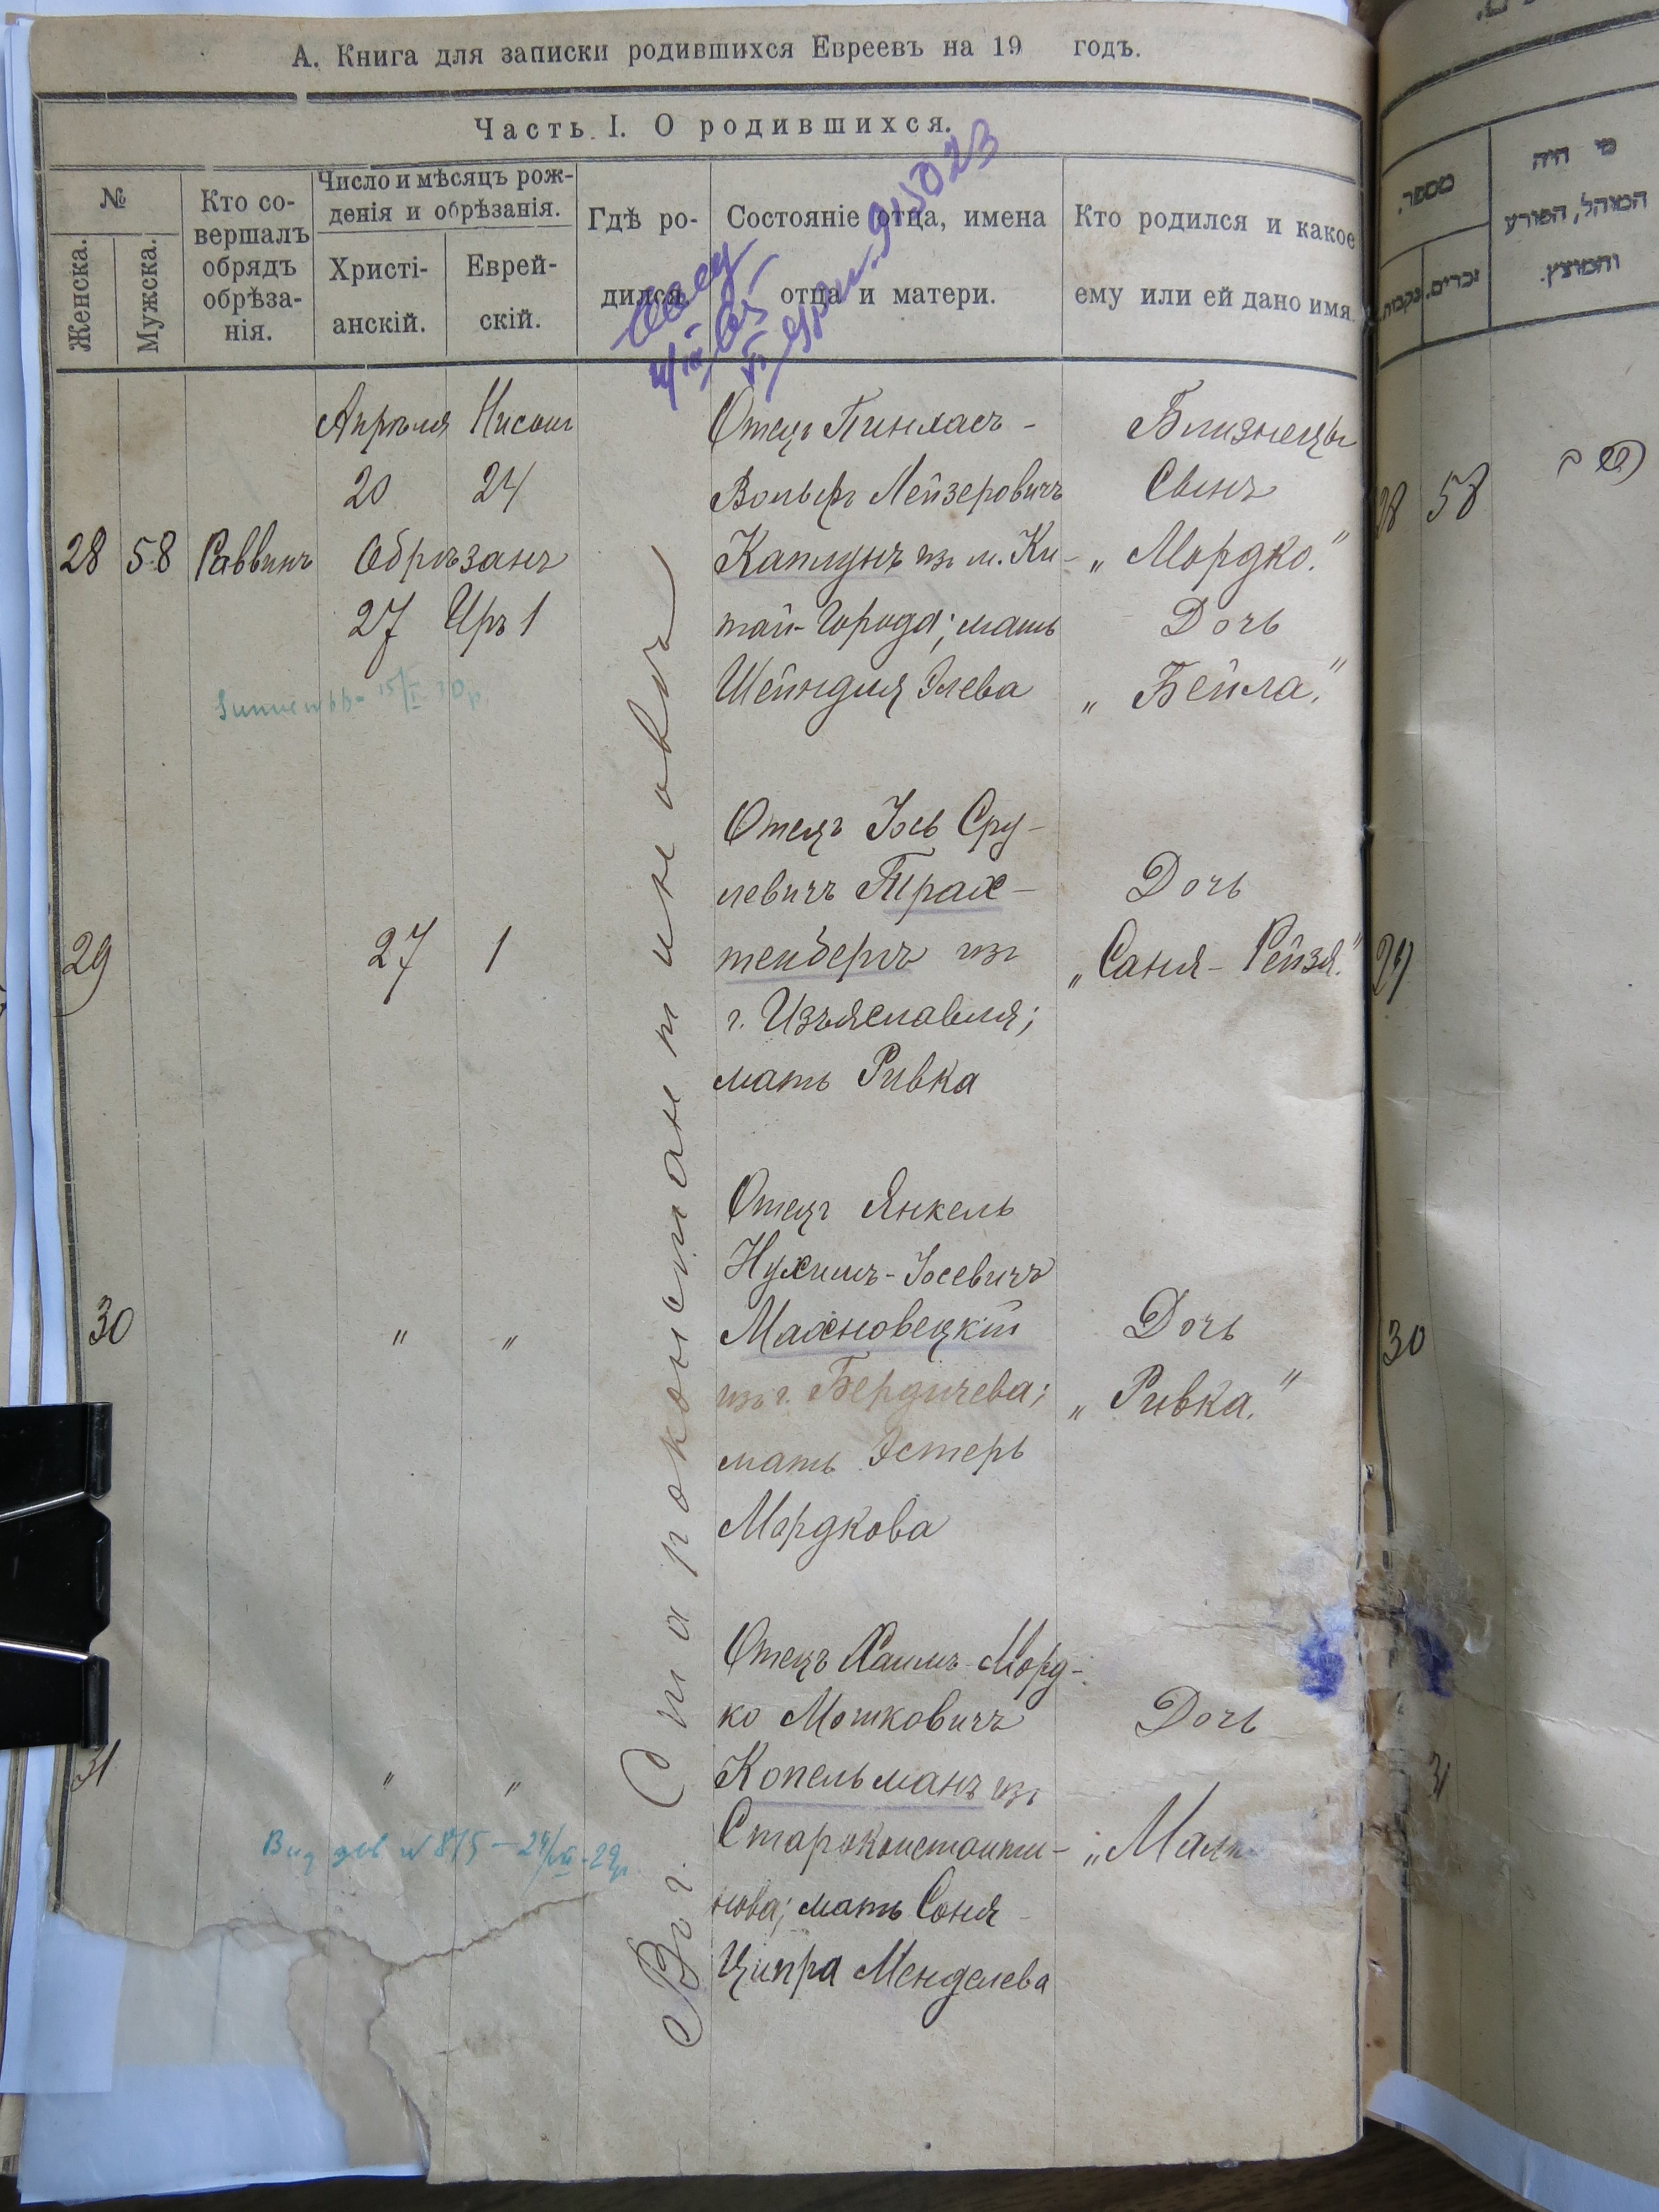 А. Книга для записки родившихся Евреевъ на 19 годъ.
Часть I. О родившихся.
№
Женска.
Мужска.
Кто со-
вершалъ
обрядъ
обрѣза-
нія.
Число и мѣсяцъ рож-
денія и обрѣзанія.
Христі-
анскій.
Еврей-
скій.
Гдѣ ро-
дился.
Состояніе отца, имена
отца и матери.
Кто родился и какое
ему или ей дано имя.
Апрѣля Нисонъ
20 24
28 58 Раввинъ Обрѣзанъ
27 Иръ 1
Отецъ Пинхасъ-
Вольфъ Лейзеровичъ
Каплунъ изъ м. Ки-
тай-Города; мать
Шейндля Элева
Близнецы
Сынъ
„Мордко."
Дочь
„Бейла."
29 27 1
Отецъ Іось Сру-
левичъ Трах-
тенбергъ изъ
г. Изъяславля;
мать Ривка
Дочь
„Саня-Рейзя."
30 " "
Отецъ Янкель
Нухимъ-Іосевичъ
Махновецкій
изъ г. Бердичева;
мать Эстеръ
Мордкова
Дочь
„Ривка."
31 " "
Отецъ Хаимъ-Морд-
ко Мошковичъ
Копельманъ изъ
Староконстанти-
нова; мать Соня-
Ципра Менделева
Дочь
„Мал
Въ г. Староконстантиновѣ
מספר.
נקבות.
זכרים.
מי היה
המוהל, הפורע
והמוצץ.
28 58
29
30
31